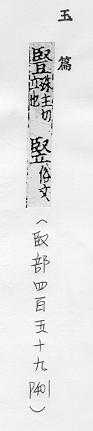 玉篇
豎殊主切立也 竪俗文 (臤部四百五十九 P401)